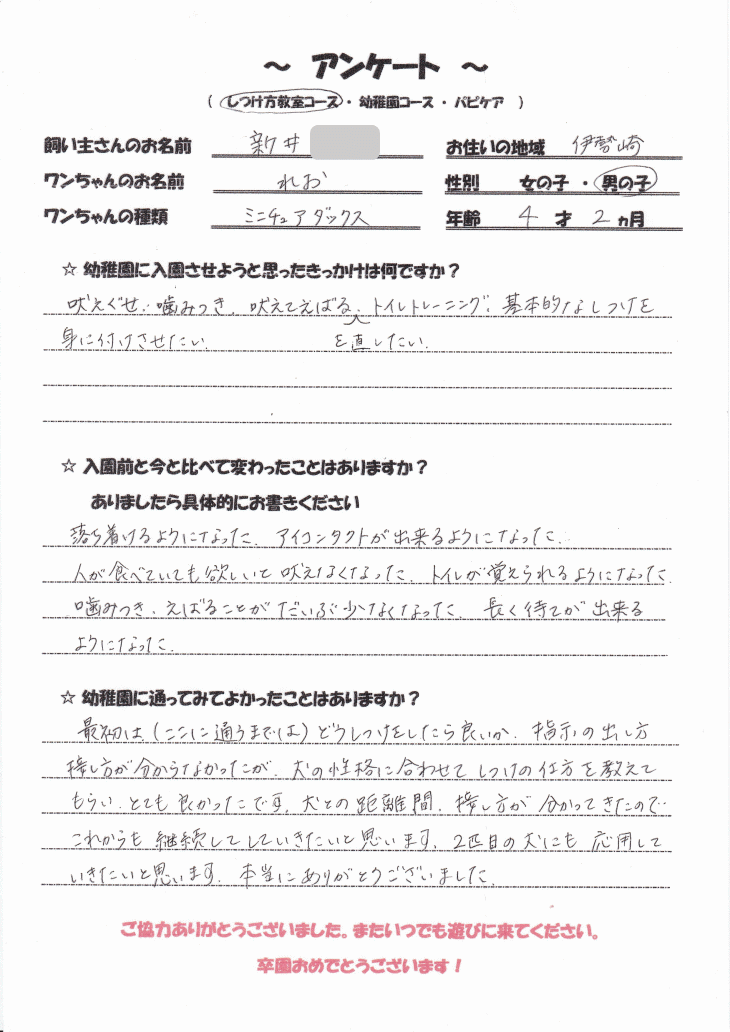 ～ アンケート ～
（ しつけ方教室コース ・ 幼稚園コース ・ パピケア ）
飼い主さんのお名前 新井 お住いの地域 伊勢崎
ワンちゃんのお名前 れお 性別 女の子 ・ 男の子
ワンちゃんの種類 ミニチュアダックス 年齢 4 才 2 ヵ月
☆ 幼稚園に入園させようと思ったきっかけは何ですか？
吠えぐせ、噛みつき、吠えてえばる、トイレトレーニング、基本的なしつけを
身に付けさせたい。 を直したい。
☆ 入園前と今と比べて変わったことはありますか？
ありましたら具体的にお書きください
落ち着けるようになった。アイコンタクトが出来るようになった。
人が食べていても欲しいと吠えなくなった。トイレが覚えられるようになった。
噛みつき、えばることがだいぶ少なくなった。長く待てが出来る
ようになった。
☆ 幼稚園に通ってみてよかったことはありますか？
最初は、（ここに通うまでは）どうしつけをしたら良いか、指示の出し方
接し方が分からなかったが、犬の性格に合わせてしつけの仕方を教えて
もらい、とても良かったです。犬との距離間、接し方が分かってきたので
これからも継続してしていきたいと思います。2匹目の犬にも応用して
いきたいと思います。本当にありがとうございました。
ご協力ありがとうございました。またいつでも遊びに来てください。
卒園おめでとうございます！